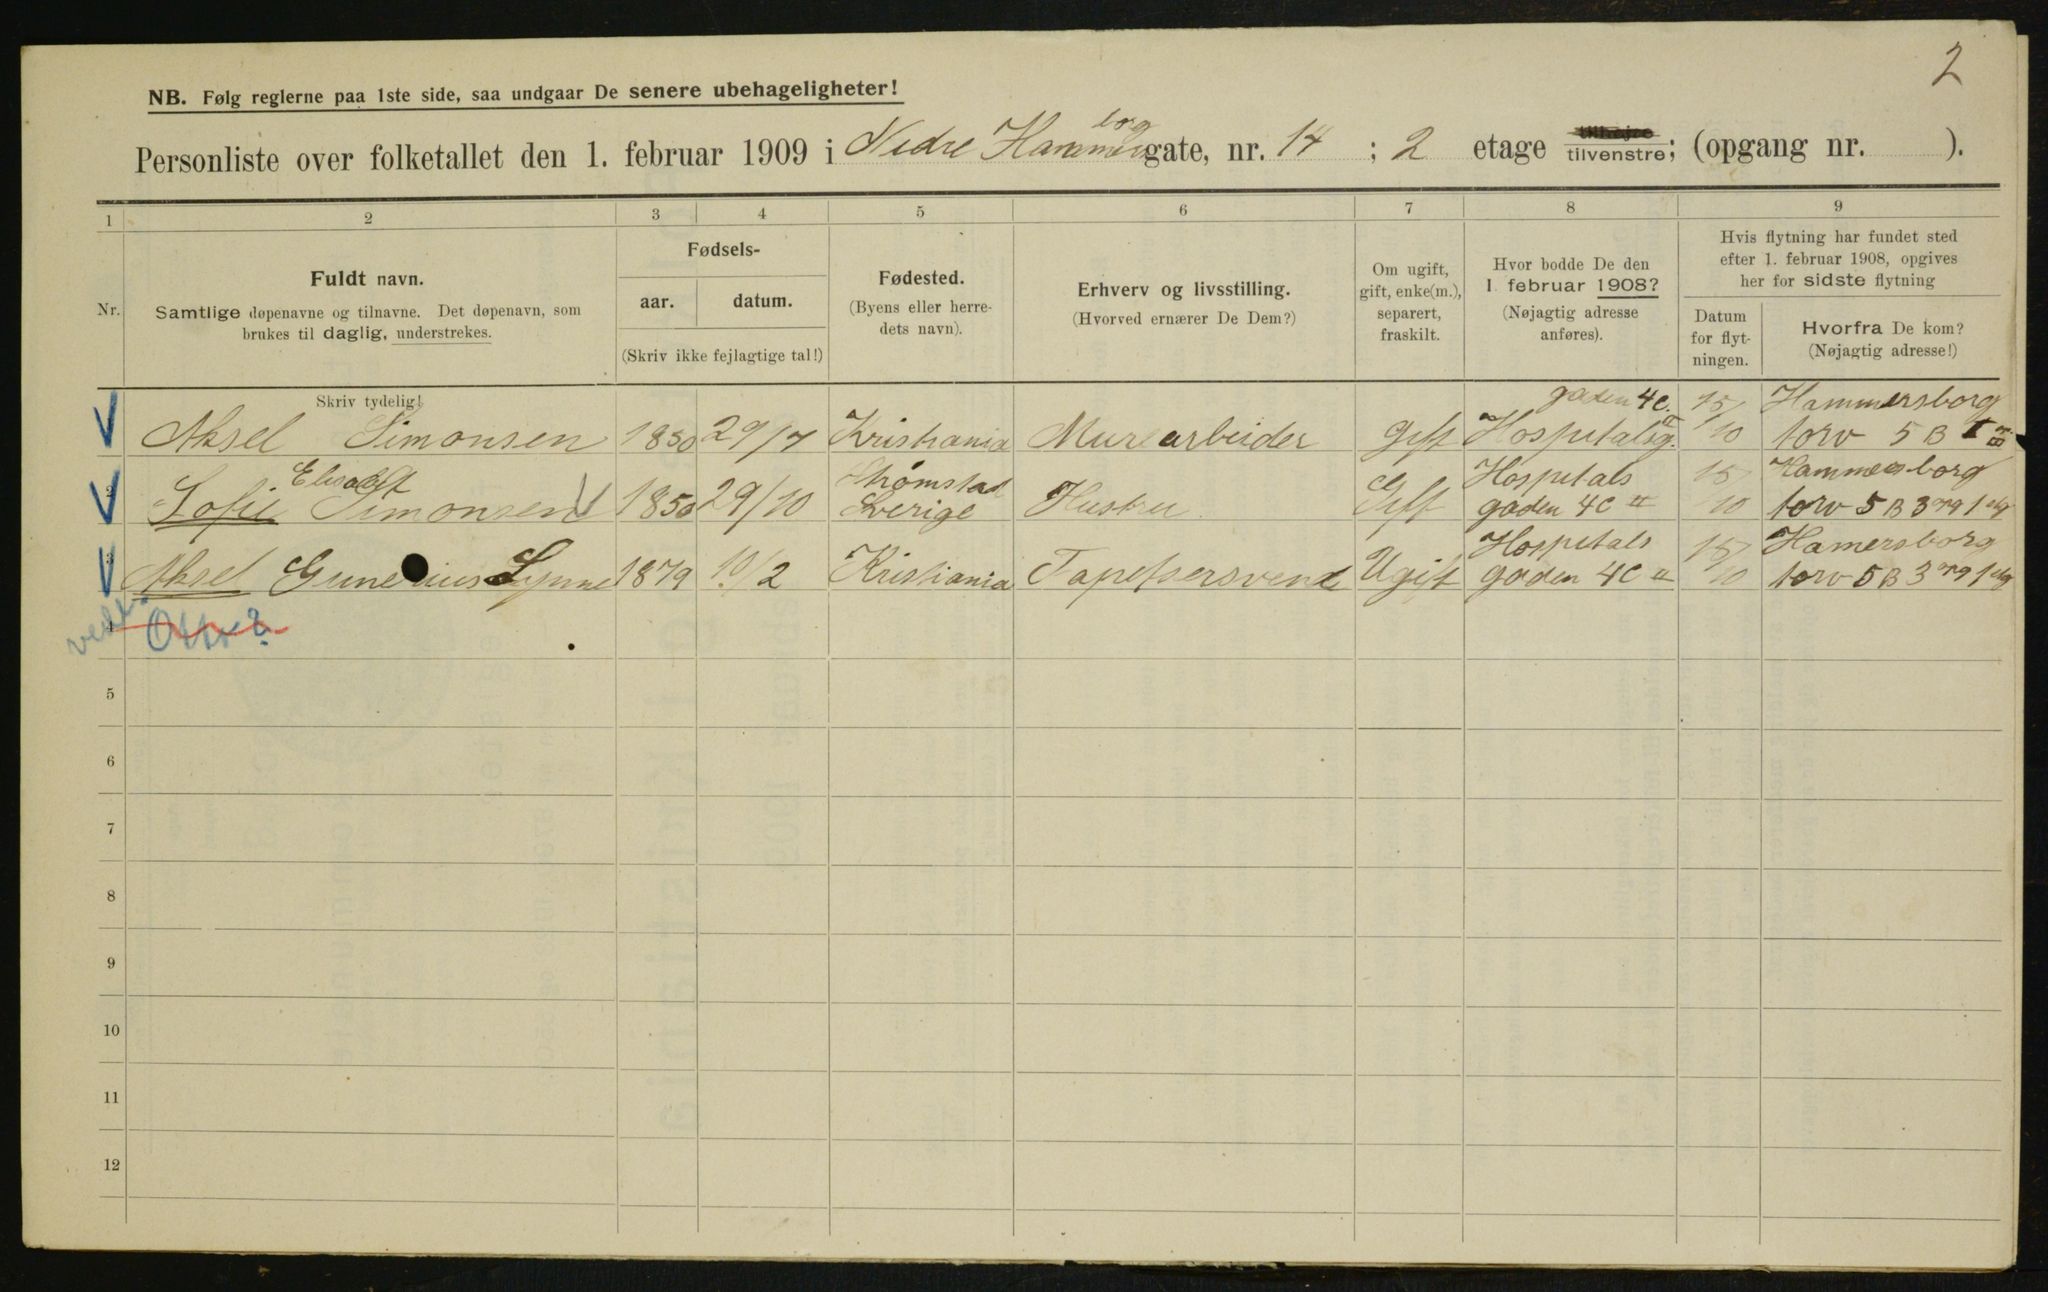 2
NB. Følg reglerne paa 1ste side, saa undgaar De senere ubehageligheter!
Personliste over folketallet den 1. februar 1909 i Nedre Hammersborggate, nr. 14 ; 2 etage tilhøjre tilvenstre; (opgang nr. ).
1 2 3 4 5 6 7 8 9
Nr.
Fuldt navn.
Samtlige døpenavne og tilnavne. Det døpenavn, som
brukes til daglig, understrekes.
Fødsels-
aar. datum.
(Skriv ikke fejlagtige tal!)
Fødested.
(Byens eller herre-
dets navn).
Erhverv og livsstilling.
(Hvorved ernærer De Dem?)
Om ugift,
gift, enke(m.),
separert,
fraskilt.
Hvor bodde De den
1. februar 1908?
(Nøjagtig adresse
anføres).
Hvis flytning har fundet sted
efter 1. februar 1908, opgives
her for sidste flytning
Datum
for flyt-
ningen.
Hvorfra De kom?
(Nøjagtig adresse!)
Skriv tydelig!
Aksel Simonsen 1850 29/7 Kristiania Murearbeider Gift Hospitalsg. gaden 4c. II 15/10 Hammersborg
torv 5 B
2 Sofie Elisabet Simonsen 1850 29/10 Strømstad Sverige Hustru Gift Hospitals gaden 4c II 15/10 Hammersborg
torv 5 B 3 opg 1 etg
3 Aksel Gunerius Lynne 1879 10/2 Kristiania Tapetsersvend Ugift Hospitals gaden 4c II 15/10 Hamersborg
torv 5 B 3 opg 1 etg
4 Otto?
5
6
7
8
9
10
11
12